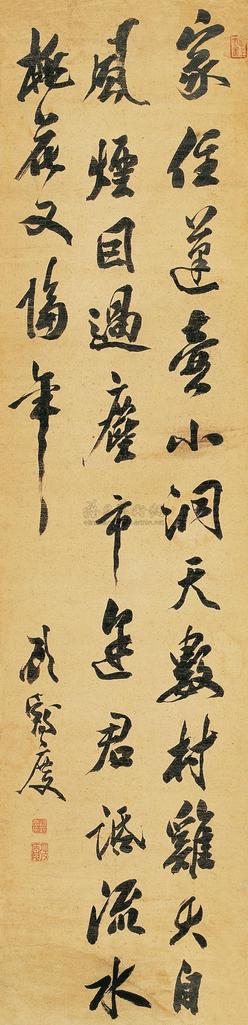 家住蓬壺小洞天數村雞犬自
風煙因過塵市逢君話流水
桃花又隔年
顧鶴慶